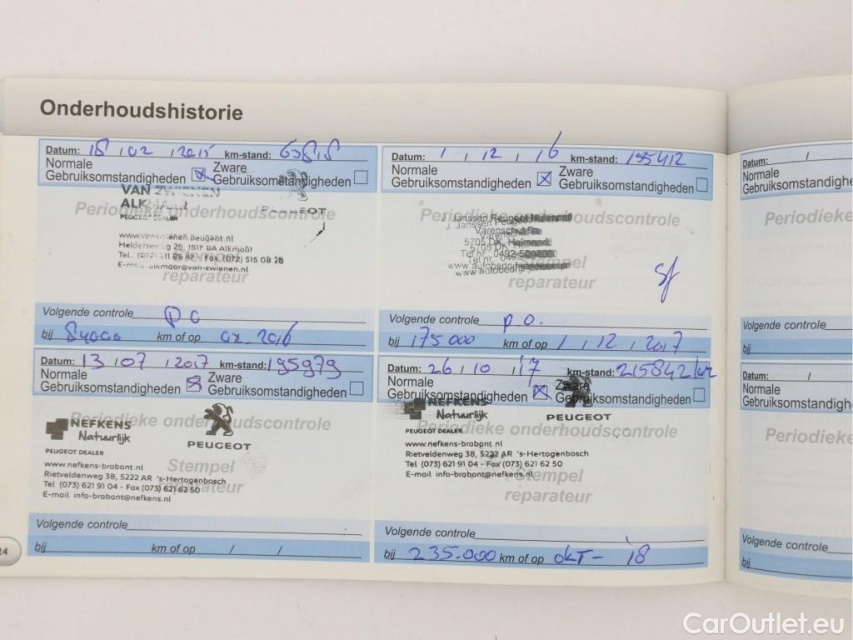 Onderhoudshistorie
Datum: 18 / 02 / 2015 km-stand:
Normale Gebruiksomstandigheden ☒ Zware Gebruiksomstandigheden ☐
VAN ZWIENEN
Periodieke onderhoudscontrole
PEUGEOT
Fax (072) 515 08 28
reparateur
Volgende controle PO
bij 84000 km of op 02 2016
Datum: 1 / 12 / 16 km-stand:
Normale Gebruiksomstandigheden ☒ Zware Gebruiksomstandigheden ☐
Periodieke onderhoudscontrole
J. Janssen
Stempel
reparateur
Volgende controle p.o.
bij 175000 km of op 1 / 12 / 2017
Datum: 13 / 07 / 2017 km-stand: 195979
Normale Gebruiksomstandigheden ☒ Zware Gebruiksomstandigheden ☐
Periodieke onderhoudscontrole
NEFKENS
Natuurlijk
PEUGEOT
PEUGEOT DEALER
www.nefkens-brabant.nl
Stempel
Rietveldenweg 38, 5222 AR 's-Hertogenbosch
Tel (073) 621 91 04 - Fax (073) 621 62 50
reparateur
E-mail info-brabant@nefkens.nl
Volgende controle
bij km of op / /
Datum: 26 / 10 / 17 km-stand: 215842 km
Normale Gebruiksomstandigheden ☒ Zware Gebruiksomstandigheden ☐
NEFKENS
Natuurlijk
PEUGEOT
Periodieke onderhoudscontrole
PEUGEOT DEALER
www.nefkens-brabant.nl
Rietveldenweg 38, 5222 AR 's-Hertogenbosch
Tel (073) 621 91 04 - Fax (073) 621 62 50
Stempel
E-mail info-brabant@nefkens.nl
reparateur
Volgende controle
bij 235.000 km of op okt - '18
24
Datum: /
Normale
Periodieke
Volgende controle
bij
Datum: /
Normale
Periodieke
Volgende controle
bij
CarOutlet.eu